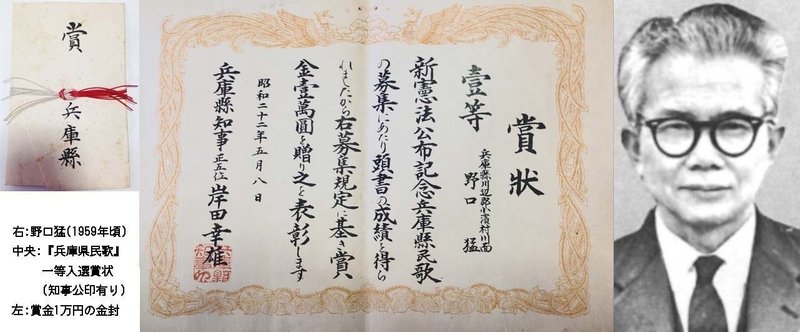 賞
兵庫縣
賞状
壹等
兵庫縣川辺郡小濱村川面
野口 猛
新憲法公布記念兵庫縣民歌
の募集にあたり頭書の成績を得ら
れましたから右募集規定に基き賞
金壹萬圓を贈り之を表彰します
昭和二十二年五月八日
兵庫縣知事 正五位 岸田幸雄
右:野口猛(1959年頃)
中央:『兵庫県民歌』
一等入選賞状
(知事公印有り)
左:賞金1万円の金封